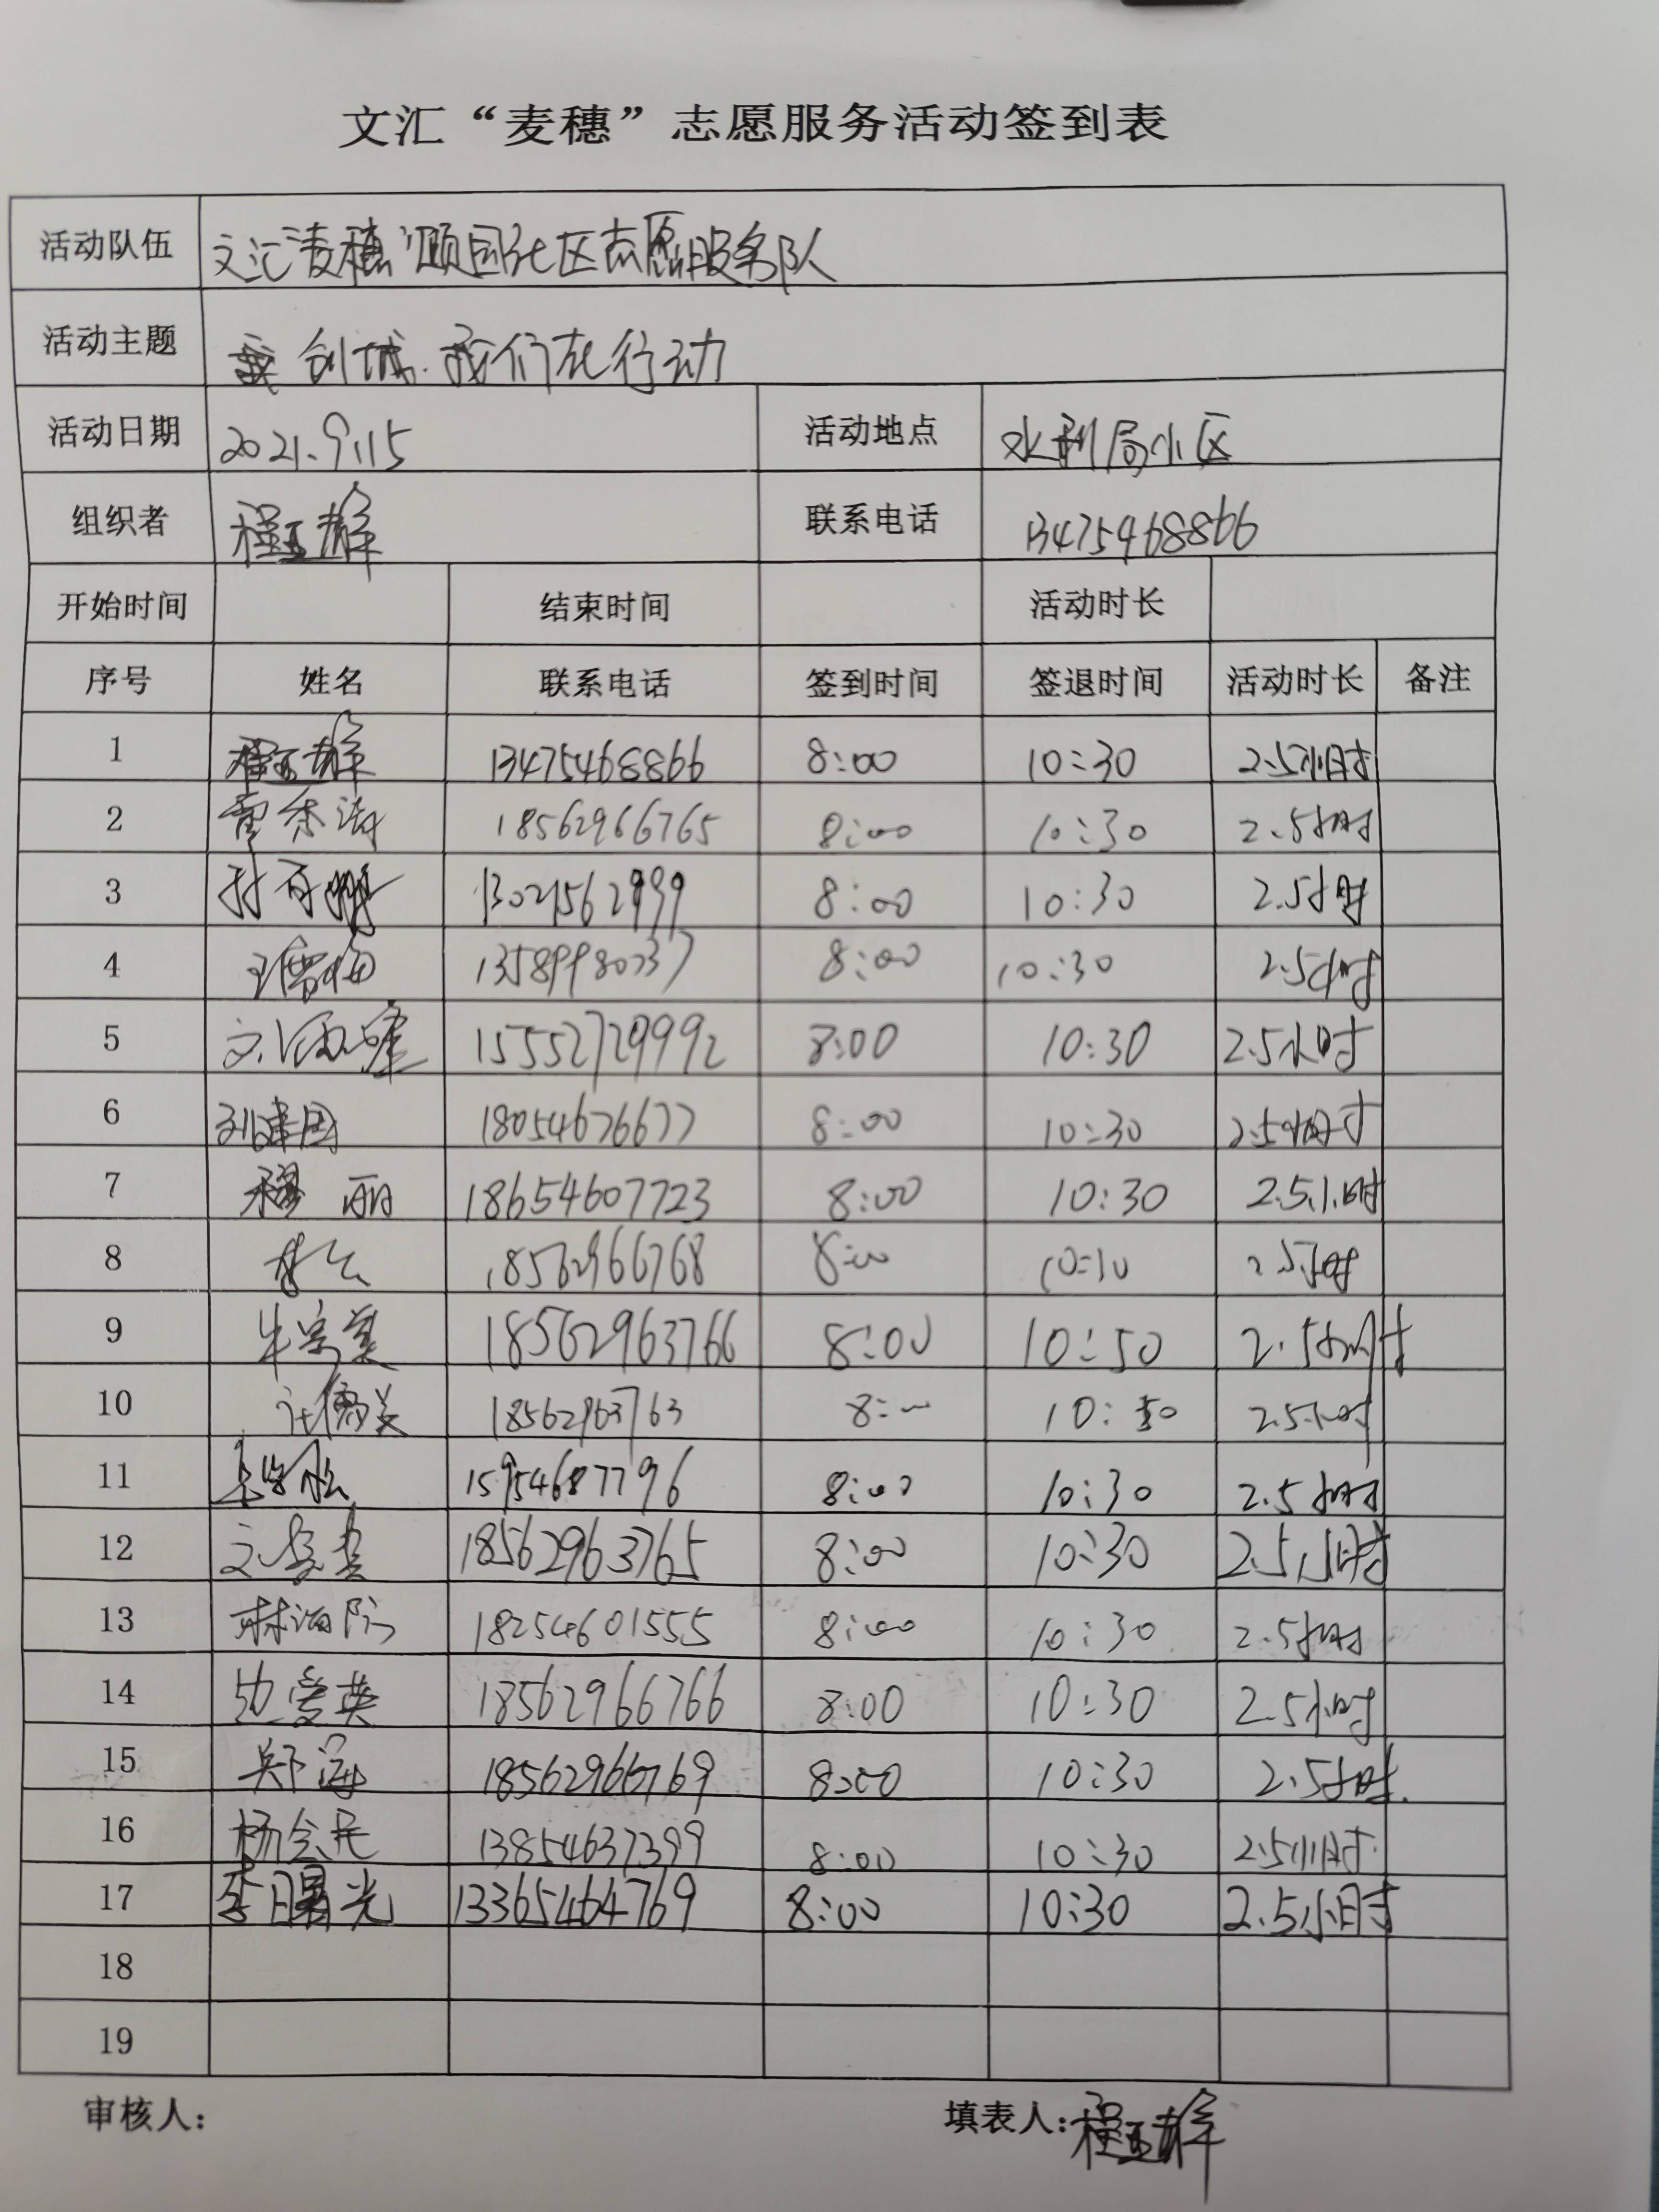 文汇“麦穗”志愿服务活动签到表
活动队伍 文汇麦穗颐园社区志愿服务队
活动主题 创城.我们在行动
活动日期 2021.9.15 活动地点 水利局小区
组织者 程 联系电话 13475468866
开始时间 结束时间 活动时长
序号 姓名 联系电话 签到时间 签退时间 活动时长 备注
1 程 13475468866 8:00 10:30 2.5小时
2 18562966765 8:00 10:30 2.5小时
3 13021562999 8:00 10:30 2.5小时
4 8:00 10:30 2.5小时
5 15552729992 8:00 10:30 2.5小时
6 刘建国 18054676677 8:00 10:30 2.5小时
7 穆丽 18654607723 8:00 10:30 2.5小时
8 18562966768 8:00 10:30 2.5小时
9 18562963766 8:00 10:50 2.5小时
10 18562963763 8:00 10:30 2.5小时
11 15954687796 8:00 10:30 2.5小时
12 18562963765 8:00 10:30 2.5小时
13 林海 18254601555 8:00 10:30 2.5小时
14 边爱英 18562966766 8:00 10:30 2.5小时
15 18562966769 8:00 10:30 2.5小时
16 杨会民 13854637399 8:00 10:30 2.5小时
17 李曙光 13365464769 8:00 10:30 2.5小时
18
19
审核人： 填表人：程